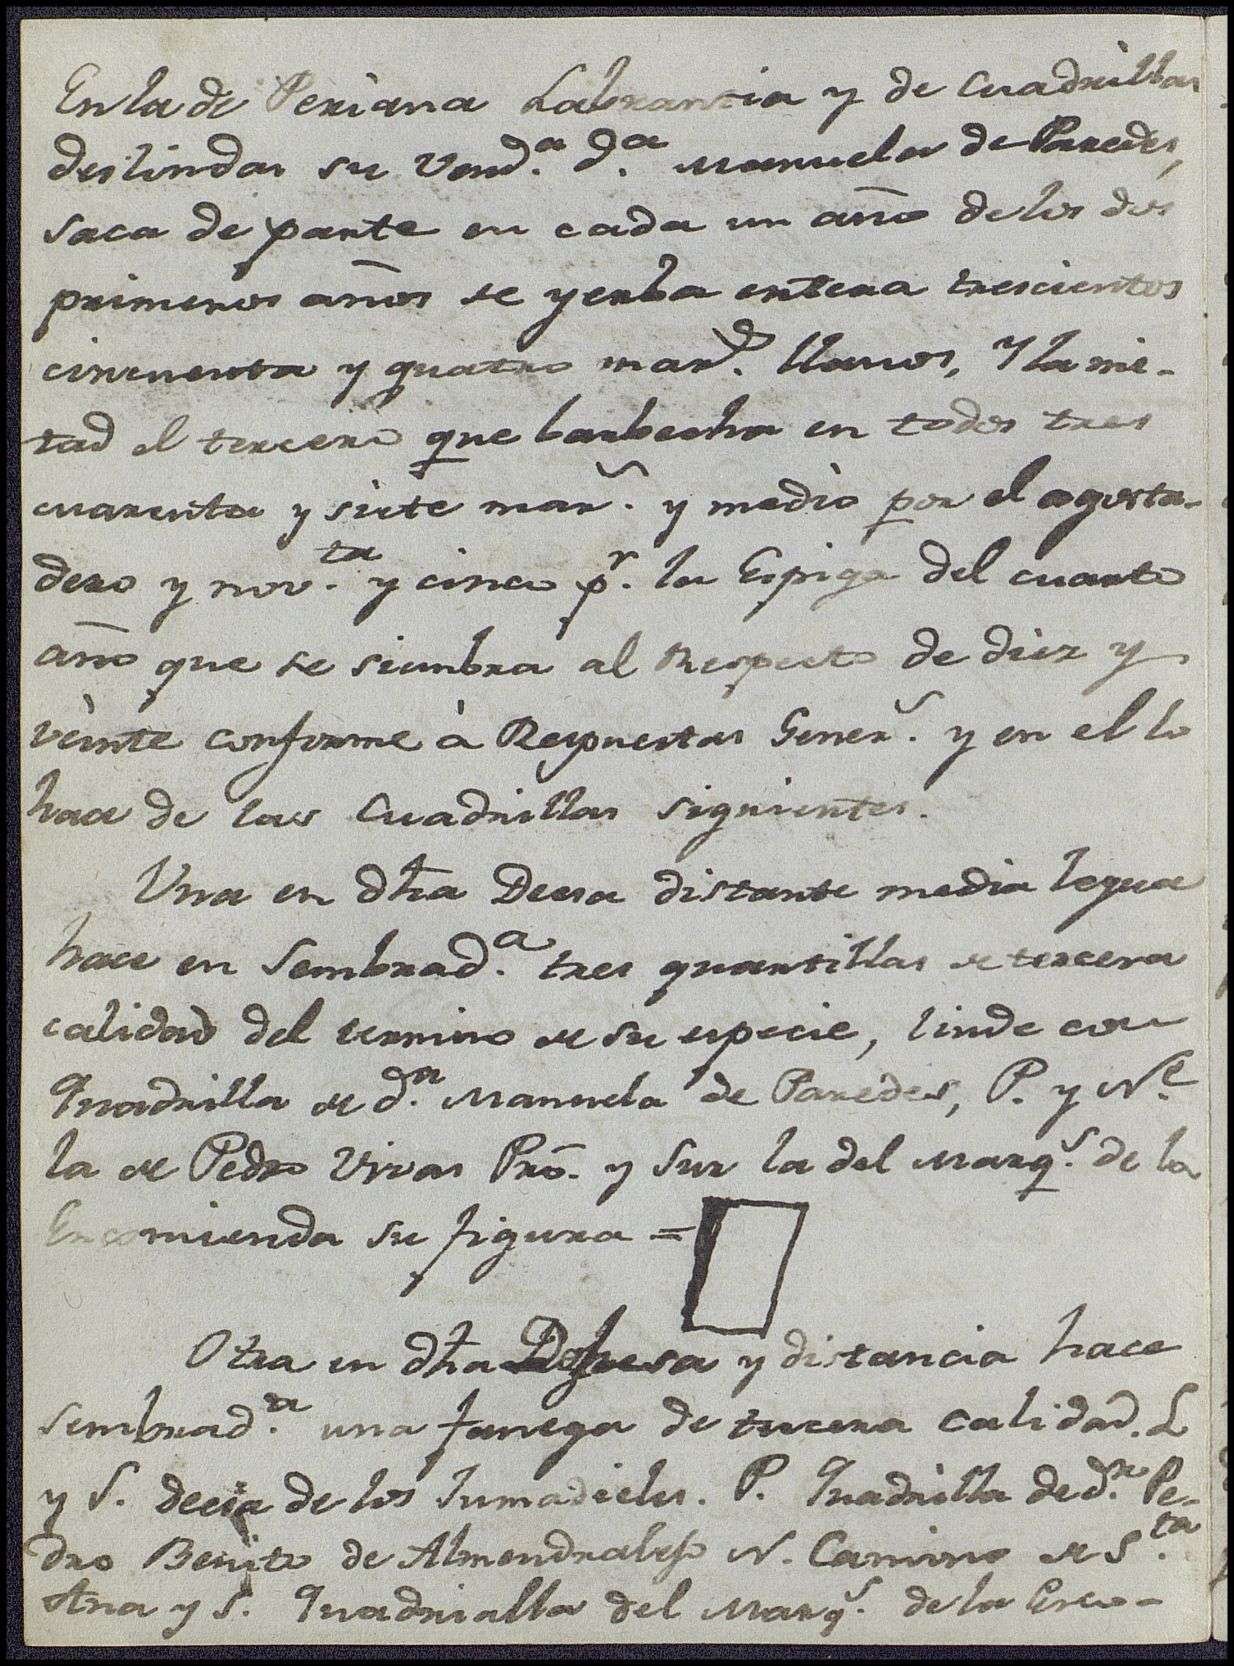 En la de Periana Labrantia y de Cuadrillas
deslindas su Vend.ª d.ª Manuela de Paredes,
saca de parte en cada un año de los dos
primeros años de yerba entera trescientos
cincuenta y quatro mar.s llanos, y la mi-
tad el tercero que barbecha en todos tres
cuarenta y siete mar.s y medio por el agosta-
dero y nov.ta y cinco p.r la Espiga del cuarto
año que se siembra al Respecto de diez y
veinte conforme à Respuestas Gener.s y en el lo
hace de las Cuadrillas siguientes.
Una en dha Deesa distante media legua
hace en Sembrad.a tres quartillas de tercera
calidad del termino de su especie, linde con
Quadrilla de d.a Manuela de Paredes, P. y N.e
la de Pedro Vivas Pro. y Sur la del Marq.s de la
Encomienda su figura =
Otra en dha Dehesa y distancia hace
sembrad.a una fanega de tercera calidad. L
y S. deesa de los P. Quadrilla de d.n Pe-
dro Benito de Almendralejo N. Camino de S.ta
Ana y S. Quadrialla del Marq.s de la Enco-